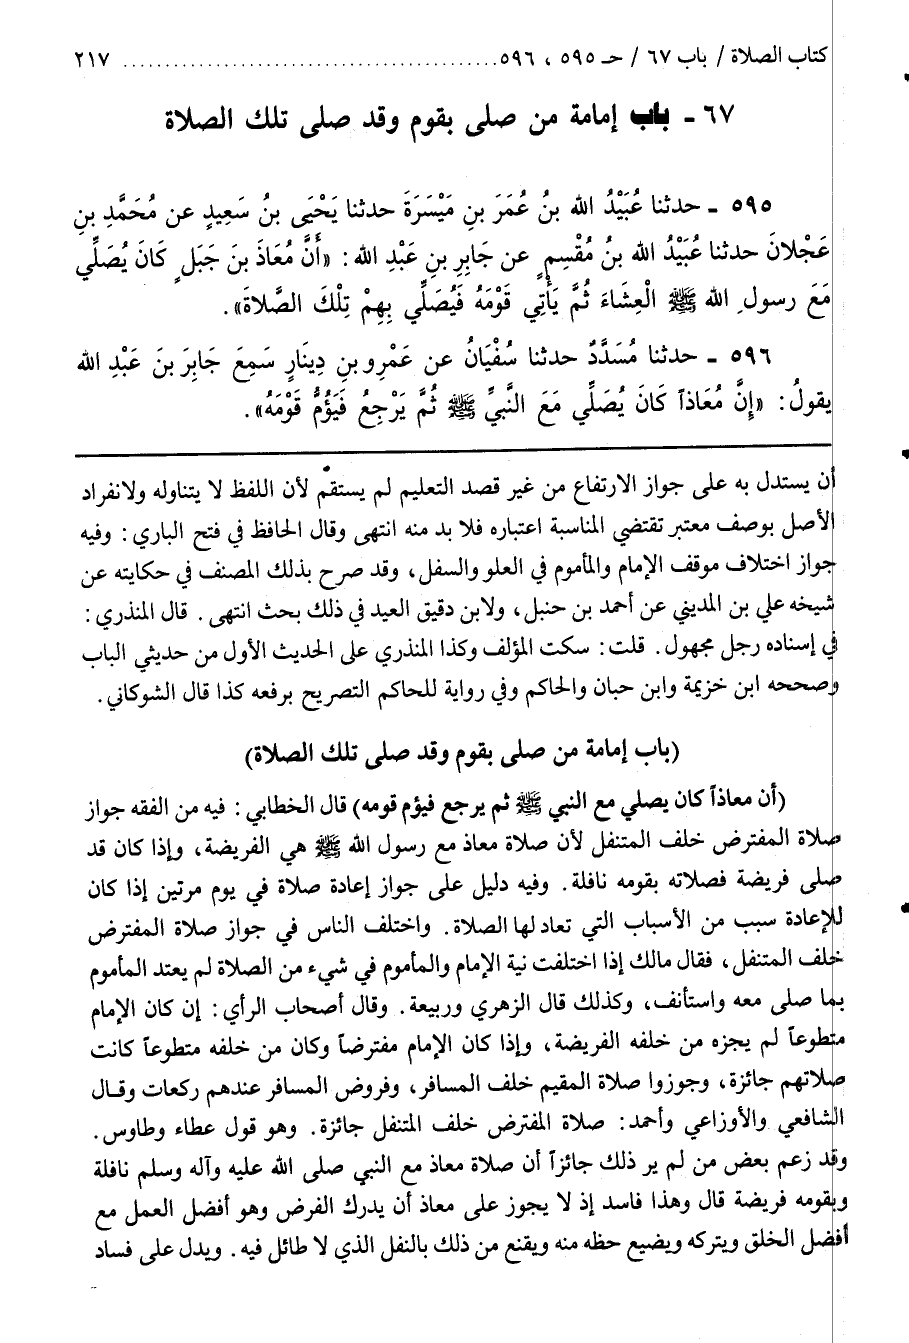 كتاب الصلاة / باب ٦٧ / حـ ٥٩٥ ، ٥٩٦ ............................................. ٢١٧
٦٧ - باب إمامة من صلى بقوم وقد صلى تلك الصلاة
٥٩٥ - حدثنا عُبَيْدُ الله بنُ عُمَرَ بنِ مَيْسَرَةَ حدثنا يَحْيَى بنُ سَعِيدٍ عن مُحَمَّدِ بنِ
عَجْلانَ حدثنا عُبَيْدُ الله بنُ مُقْسِمٍ عن جَابِرِ بنِ عَبْدِ الله : «أَنَّ مُعَاذَ بنَ جَبَلٍ كَانَ يُصَلِّي
مَعَ رسولِ الله ﷺ الْعِشَاءَ ثُمَّ يَأْتِي قَوْمَهُ فَيُصَلِّي بِهِمْ تِلْكَ الصَّلاةَ».
٥٩٦ - حدثنا مُسَدَّدٌ حدثنا سُفْيَانُ عن عَمْرِو بنِ دِينَارٍ سَمِعَ جَابِرَ بنَ عَبْدِ الله
يقولُ: «إِنَّ مُعَاذاً كَانَ يُصَلِّي مَعَ النَّبيِّ ﷺ ثُمَّ يَرْجِعُ فَيَؤُمُّ قَوْمَهُ».
أن يستدل به على جواز الارتفاع من غير قصد التعليم لم يستقم لأن اللفظ لا يتناوله ولانفراد
الأصل بوصف معتبر تقتضي المناسبة اعتباره فلا بد منه انتهى وقال الحافظ في فتح الباري : وفيه
جواز اختلاف موقف الإمام والمأموم في العلو والسفل، وقد صرح بذلك المصنف في حكايته عن
شيخه علي بن المديني عن أحمد بن حنبل، ولابن دقيق العيد في ذلك بحث انتهى . قال المنذري :
في إسناده رجل مجهول. قلت: سكت المؤلف وكذا المنذري على الحديث الأول من حديثي الباب
وصححه ابن خزيمة وابن حبان والحاكم وفي رواية للحاكم التصريح برفعه كذا قال الشوكاني.
(باب إمامة من صلى بقوم وقد صلى تلك الصلاة)
(أن معاذاً كان يصلي مع النبي ﷺ ثم يرجع فيؤم قومه) قال الخطابي : فيه من الفقه جواز
صلاة المفترض خلف المتنفل لأن صلاة معاذ مع رسول الله ﷺ هي الفريضة، وإذا كان قد
صلى فريضة فصلاته بقومه نافلة. وفيه دليل على جواز إعادة صلاة في يوم مرتين إذا كان
للإعادة سبب من الأسباب التي تعاد لها الصلاة. واختلف الناس في جواز صلاة المفترض
خلف المتنفل، فقال مالك إذا اختلفت نية الإمام والمأموم في شيء من الصلاة لم يعتد المأموم
بما صلى معه واستأنف، وكذلك قال الزهري وربيعة. وقال أصحاب الرأي: إن كان الإمام
متطوعاً لم يجزه من خلفه الفريضة، وإذا كان الإمام مفترضاً وكان من خلفه متطوعاً كانت
صلاتهم جائزة، وجوزوا صلاة المقيم خلف المسافر، وفروض المسافر عندهم ركعات وقال
الشافعي والأوزاعي وأحمد: صلاة المفترض خلف المتنفل جائزة. وهو قول عطاء وطاوس.
وقد زعم بعض من لم ير ذلك جائزاً أن صلاة معاذ مع النبي صلى الله عليه وآله وسلم نافلة
وبقومه فريضة قال وهذا فاسد إذ لا يجوز على معاذ أن يدرك الفرض وهو أفضل العمل مع
أفضل الخلق ويتركه ويضيع حظه منه ويقنع من ذلك بالنفل الذي لا طائل فيه. ويدل على فساد